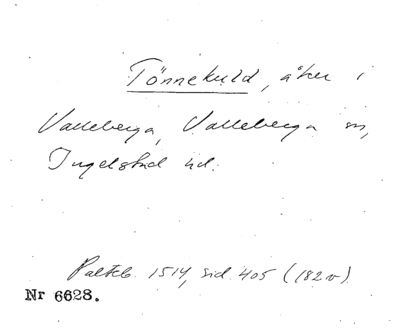 Tönnekuld, åker i
Valleberga, Valleberga sn,
Ingelstad hd.
Palteb. 1514, sid. 405 (182 v)
Nr 6628.